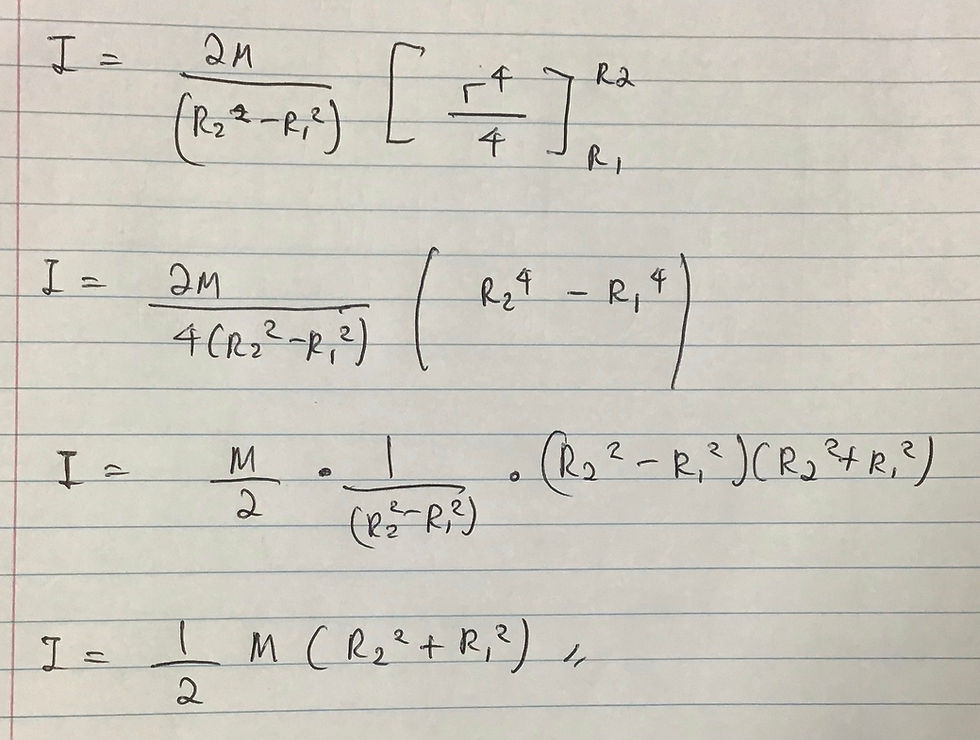 I = 2M / (R₂² − R₁²) [ r⁴ / 4 ] R2 R₁
I = 2M / 4(R₂² − R₁²) ( R₂⁴ − R₁⁴ )
I = M / 2 • 1 / (R₂² − R₁²) • (R₂² − R₁²)(R₂² + R₁²)
I = 1 / 2 M ( R₂² + R₁² ) //